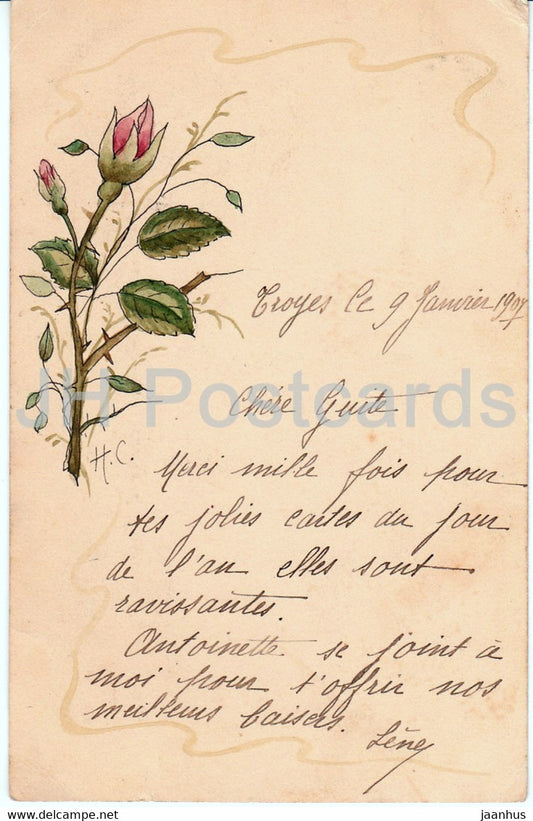 Troyes le 9 Janvier 1907
Chère Guite
H.C.
Merci mille fois pour
tes jolies cartes du jour
de l'an elles sont
ravissantes.
Antoinette se joint à
moi pour t'offrir nos
meilleurs baisers.
JH Postcards
www.hippostcard.com
jaanhus